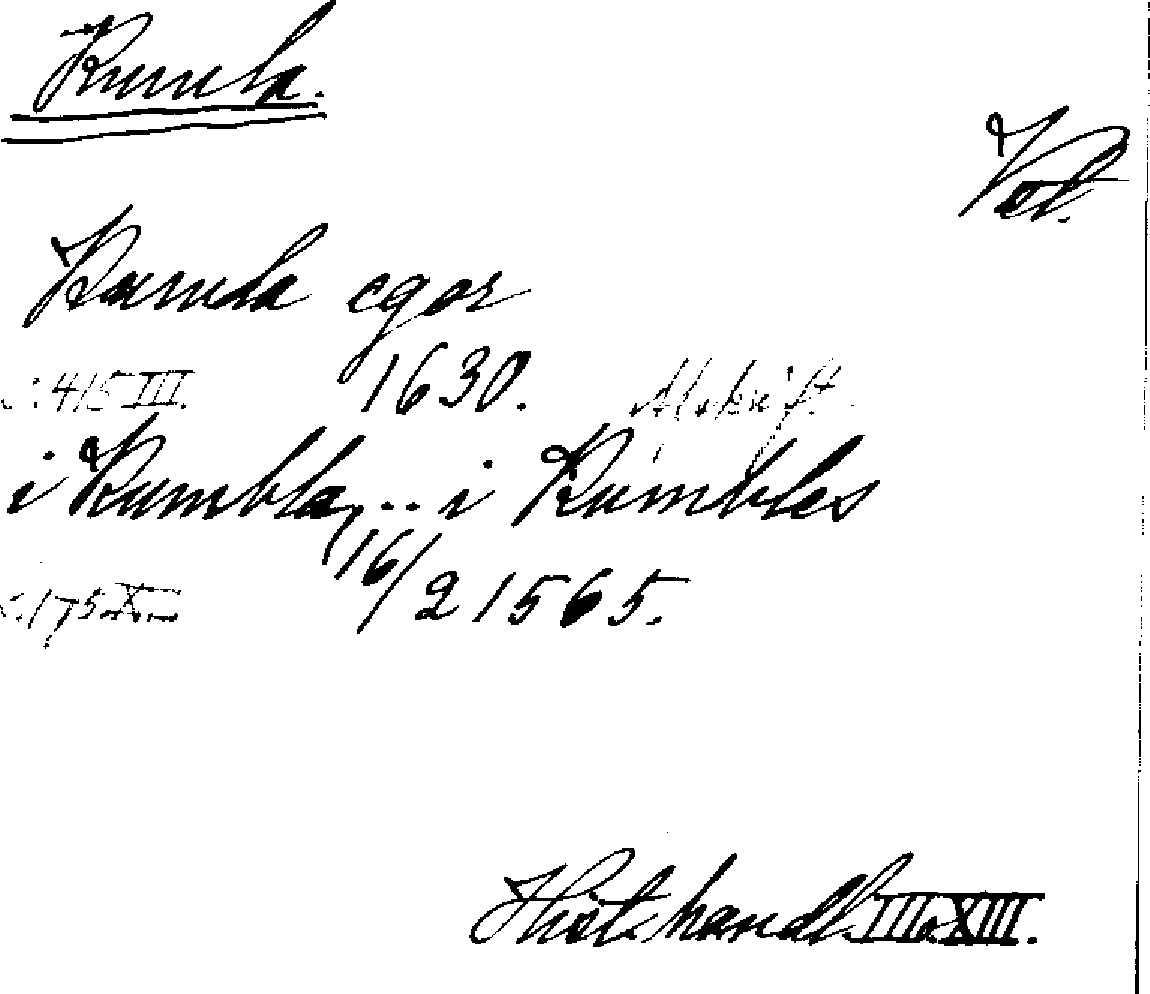 Kumla.
Vstl.
Kumla egor
s. 415 III. 1630. Afskrift
i Kumbla, .. i Kumbles
s. 175 XIII 16/2 1565.
Hist. handl. III o. XIII.